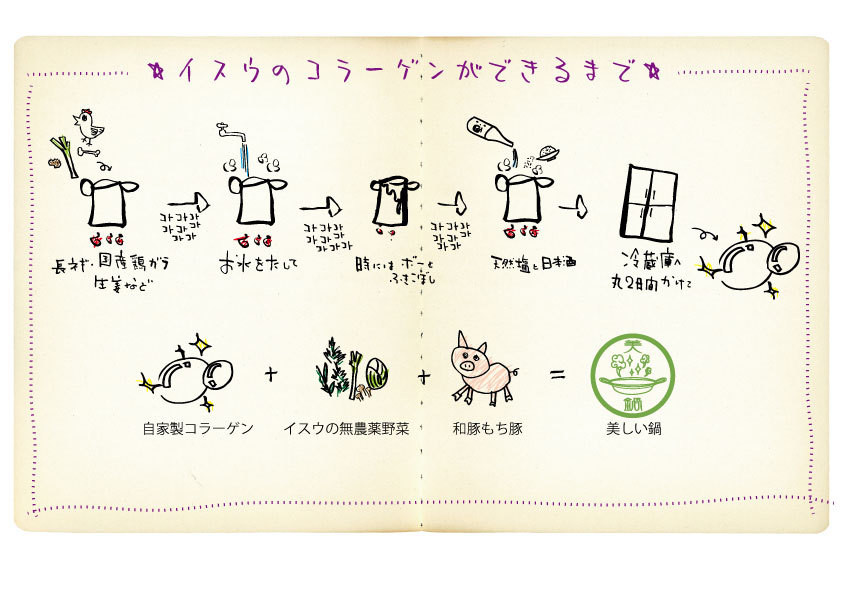 ☆イスウのコラーゲンができるまで☆
コトコトコト
コトコトコト
コトコト
コトコトコト
コトコトコト
コトコトコト
コトコトコト
コトコト
コトコト
長ネギ・国産鶏ガラ
生姜など
お水をたして
時にはボーと
ふきこぼし
天然塩と日本酒
冷蔵庫へ
丸2日間かけて
+
+
=
美
鍋
自家製コラーゲン
イスウの無農薬野菜
和豚もち豚
美しい鍋